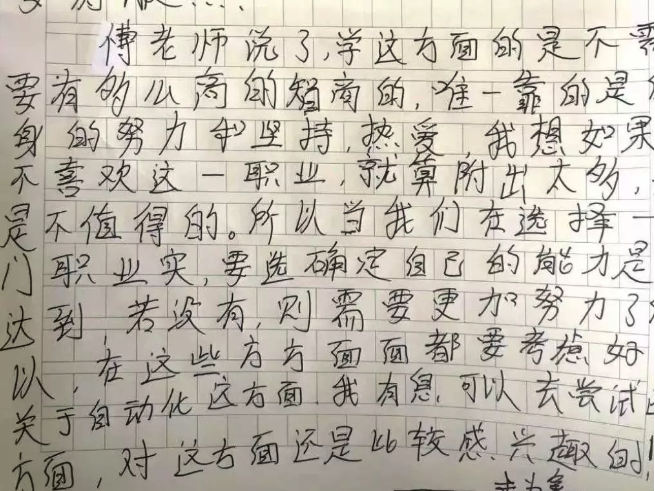 傅老师说了,学这方面的是不需
要有多么高的智商的,唯一靠的是
身的努力和坚持,热爱,我想如果
不喜欢这一职业,就算附出太多,
是不值得的。所以当我们在选择一
门职业实,要选确定自己的能力是
达到,若没有,则需要更加努力了
以,在这些方方面面都要考虑好
关于自动化这方面,我有息,可以去尝试
方面,对这方面还是比较感兴趣的,